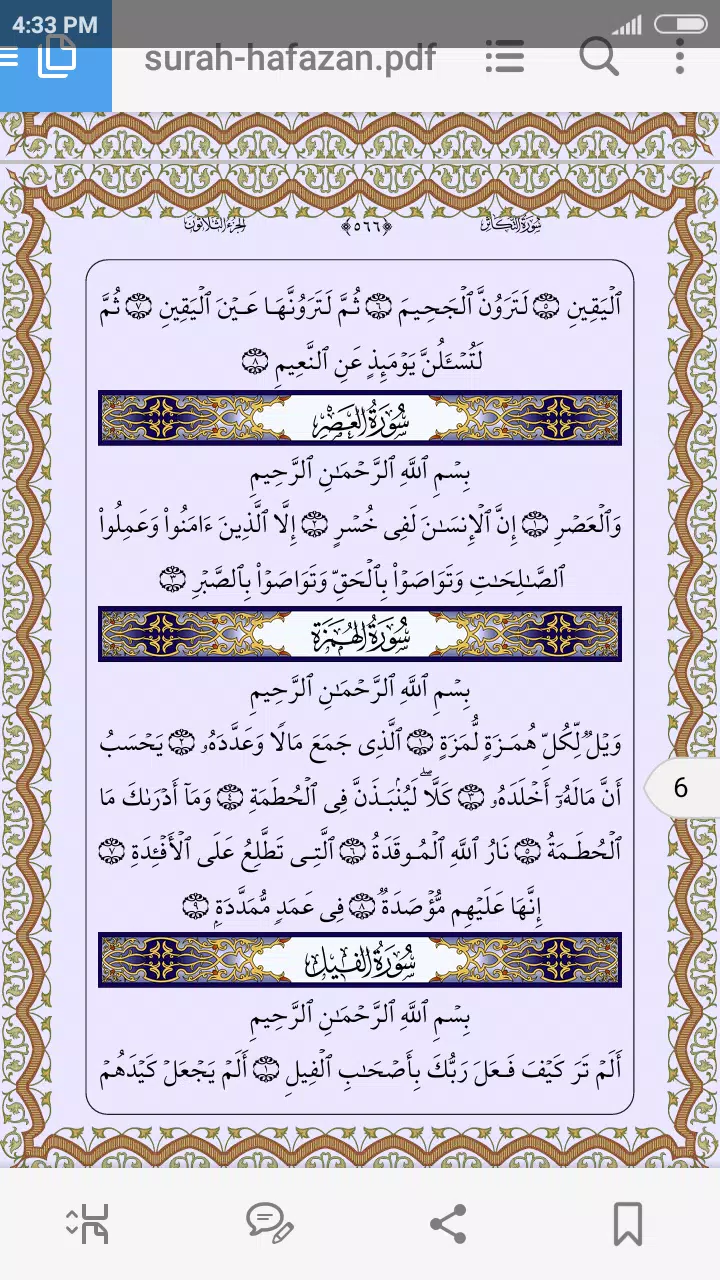 4:33 PM
surah-hafazan.pdf
سُورَةُ التَّكَاثُرِ ﴿٥٦٦﴾ الجُزْءُ الثَّلَاثُونَ
ٱلۡيَقِينِ ٥ لَتَرَوُنَّ ٱلۡجَحِيمَ ٦ ثُمَّ لَتَرَوُنَّهَا عَيۡنَ ٱلۡيَقِينِ ٧ ثُمَّ
لَتُسۡـَٔلُنَّ يَوۡمَئِذٍ عَنِ ٱلنَّعِيمِ ٨
سُورَةُ العَصْرِ
بِسۡمِ ٱللَّهِ ٱلرَّحۡمَـٰنِ ٱلرَّحِيمِ
وَٱلۡعَصۡرِ ١ إِنَّ ٱلۡإِنسَـٰنَ لَفِى خُسۡرٍ ٢ إِلَّا ٱلَّذِينَ ءَامَنُواْ وَعَمِلُواْ
ٱلصَّـٰلِحَـٰتِ وَتَوَاصَوۡاْ بِٱلۡحَقِّ وَتَوَاصَوۡاْ بِٱلصَّبۡرِ ٣
سُورَةُ الهُمَزَةِ
بِسۡمِ ٱللَّهِ ٱلرَّحۡمَـٰنِ ٱلرَّحِيمِ
وَيۡلٌ لِّكُلِّ هُمَزَةٍ لُّمَزَةٍ ١ ٱلَّذِى جَمَعَ مَالًا وَعَدَّدَهُۥ ٢ يَحۡسَبُ
أَنَّ مَالَهُۥٓ أَخۡلَدَهُۥ ٣ كَلَّاۖ لَيُنۢبَذَنَّ فِى ٱلۡحُطَمَةِ ٤ وَمَآ أَدۡرَىٰكَ مَا
ٱلۡحُطَمَةُ ٥ نَارُ ٱللَّهِ ٱلۡمُوقَدَةُ ٦ ٱلَّتِى تَطَّلِعُ عَلَى ٱلۡأَفۡـِٔدَةِ ٧
إِنَّهَا عَلَيۡهِم مُّؤۡصَدَةٌ ٨ فِى عَمَدٍ مُّمَدَّدَةِۭ ٩
سُورَةُ الفِيلِ
بِسۡمِ ٱللَّهِ ٱلرَّحۡمَـٰنِ ٱلرَّحِيمِ
أَلَمۡ تَرَ كَيۡفَ فَعَلَ رَبُّكَ بِأَصۡحَـٰبِ ٱلۡفِيلِ ١ أَلَمۡ يَجۡعَلۡ كَيۡدَهُمۡ
6